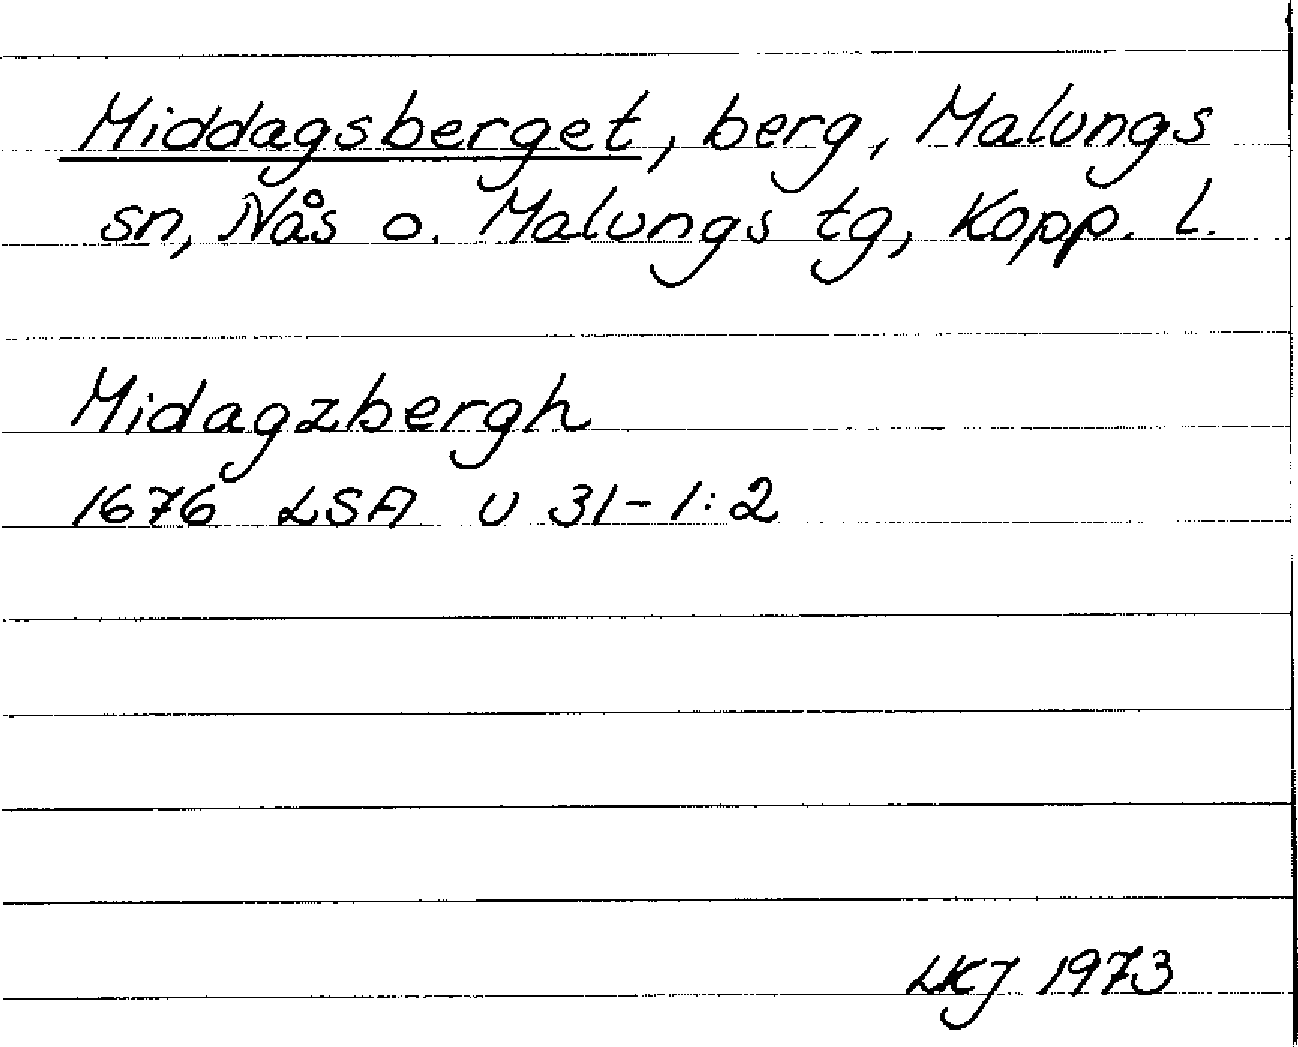 Middagsberget, berg, Malungs
sn, Nås o. Malungs tg, Kopp. l.
Midagzbergh
1676 LSA U 31-1:2
LKJ 1973